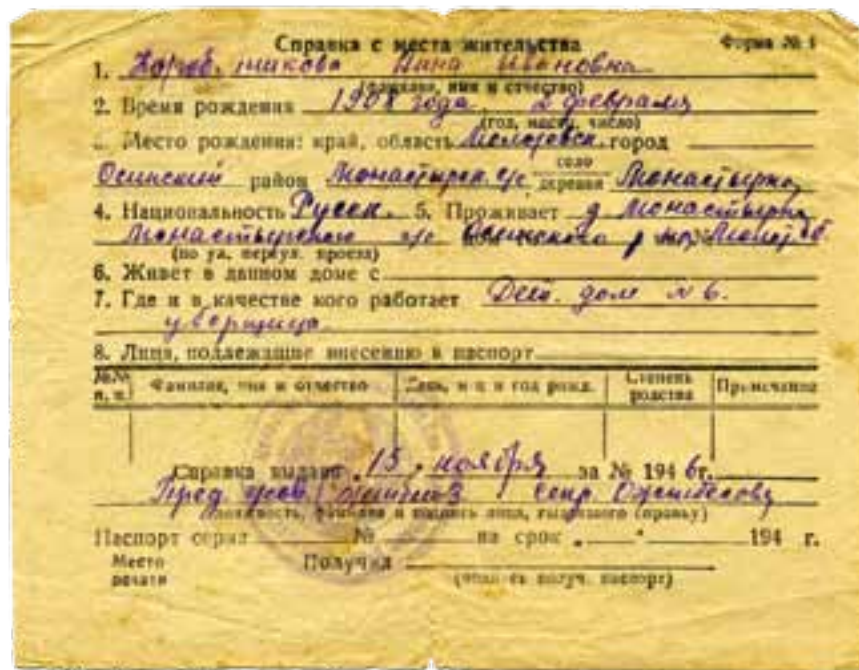 Справка с места жительства Форма № 1
1. Нина Ивановна
(фамилия, имя и отчество)
2. Время рождения 1908 года, 2 февраля
(год, месяц, число)
3. Место рождения: край, область город
Осинский район Монастырск. с/с село деревня
4. Национальность Русск. 5. Проживает д. Монастырка
Монастырского с/с Осинского
(по ул. переул. проезд)
6. Живет в данном доме с
7. Где и в качестве кого работает Дет. дом № 6.
уборщица
8. Лица, подлежащие внесению в паспорт
№№ п. п. Фамилия, имя и отчество День, м-ц и год рожд. Степень родства Примечание
Справка выдана „15„ ноября за № 1946г.
Пред.
(должность, фамилия и подпись лица, выдавшего справку)
Паспорт серии № на срок „ “ 194 г.
Место печати Получил
(подпись получ. паспорт)